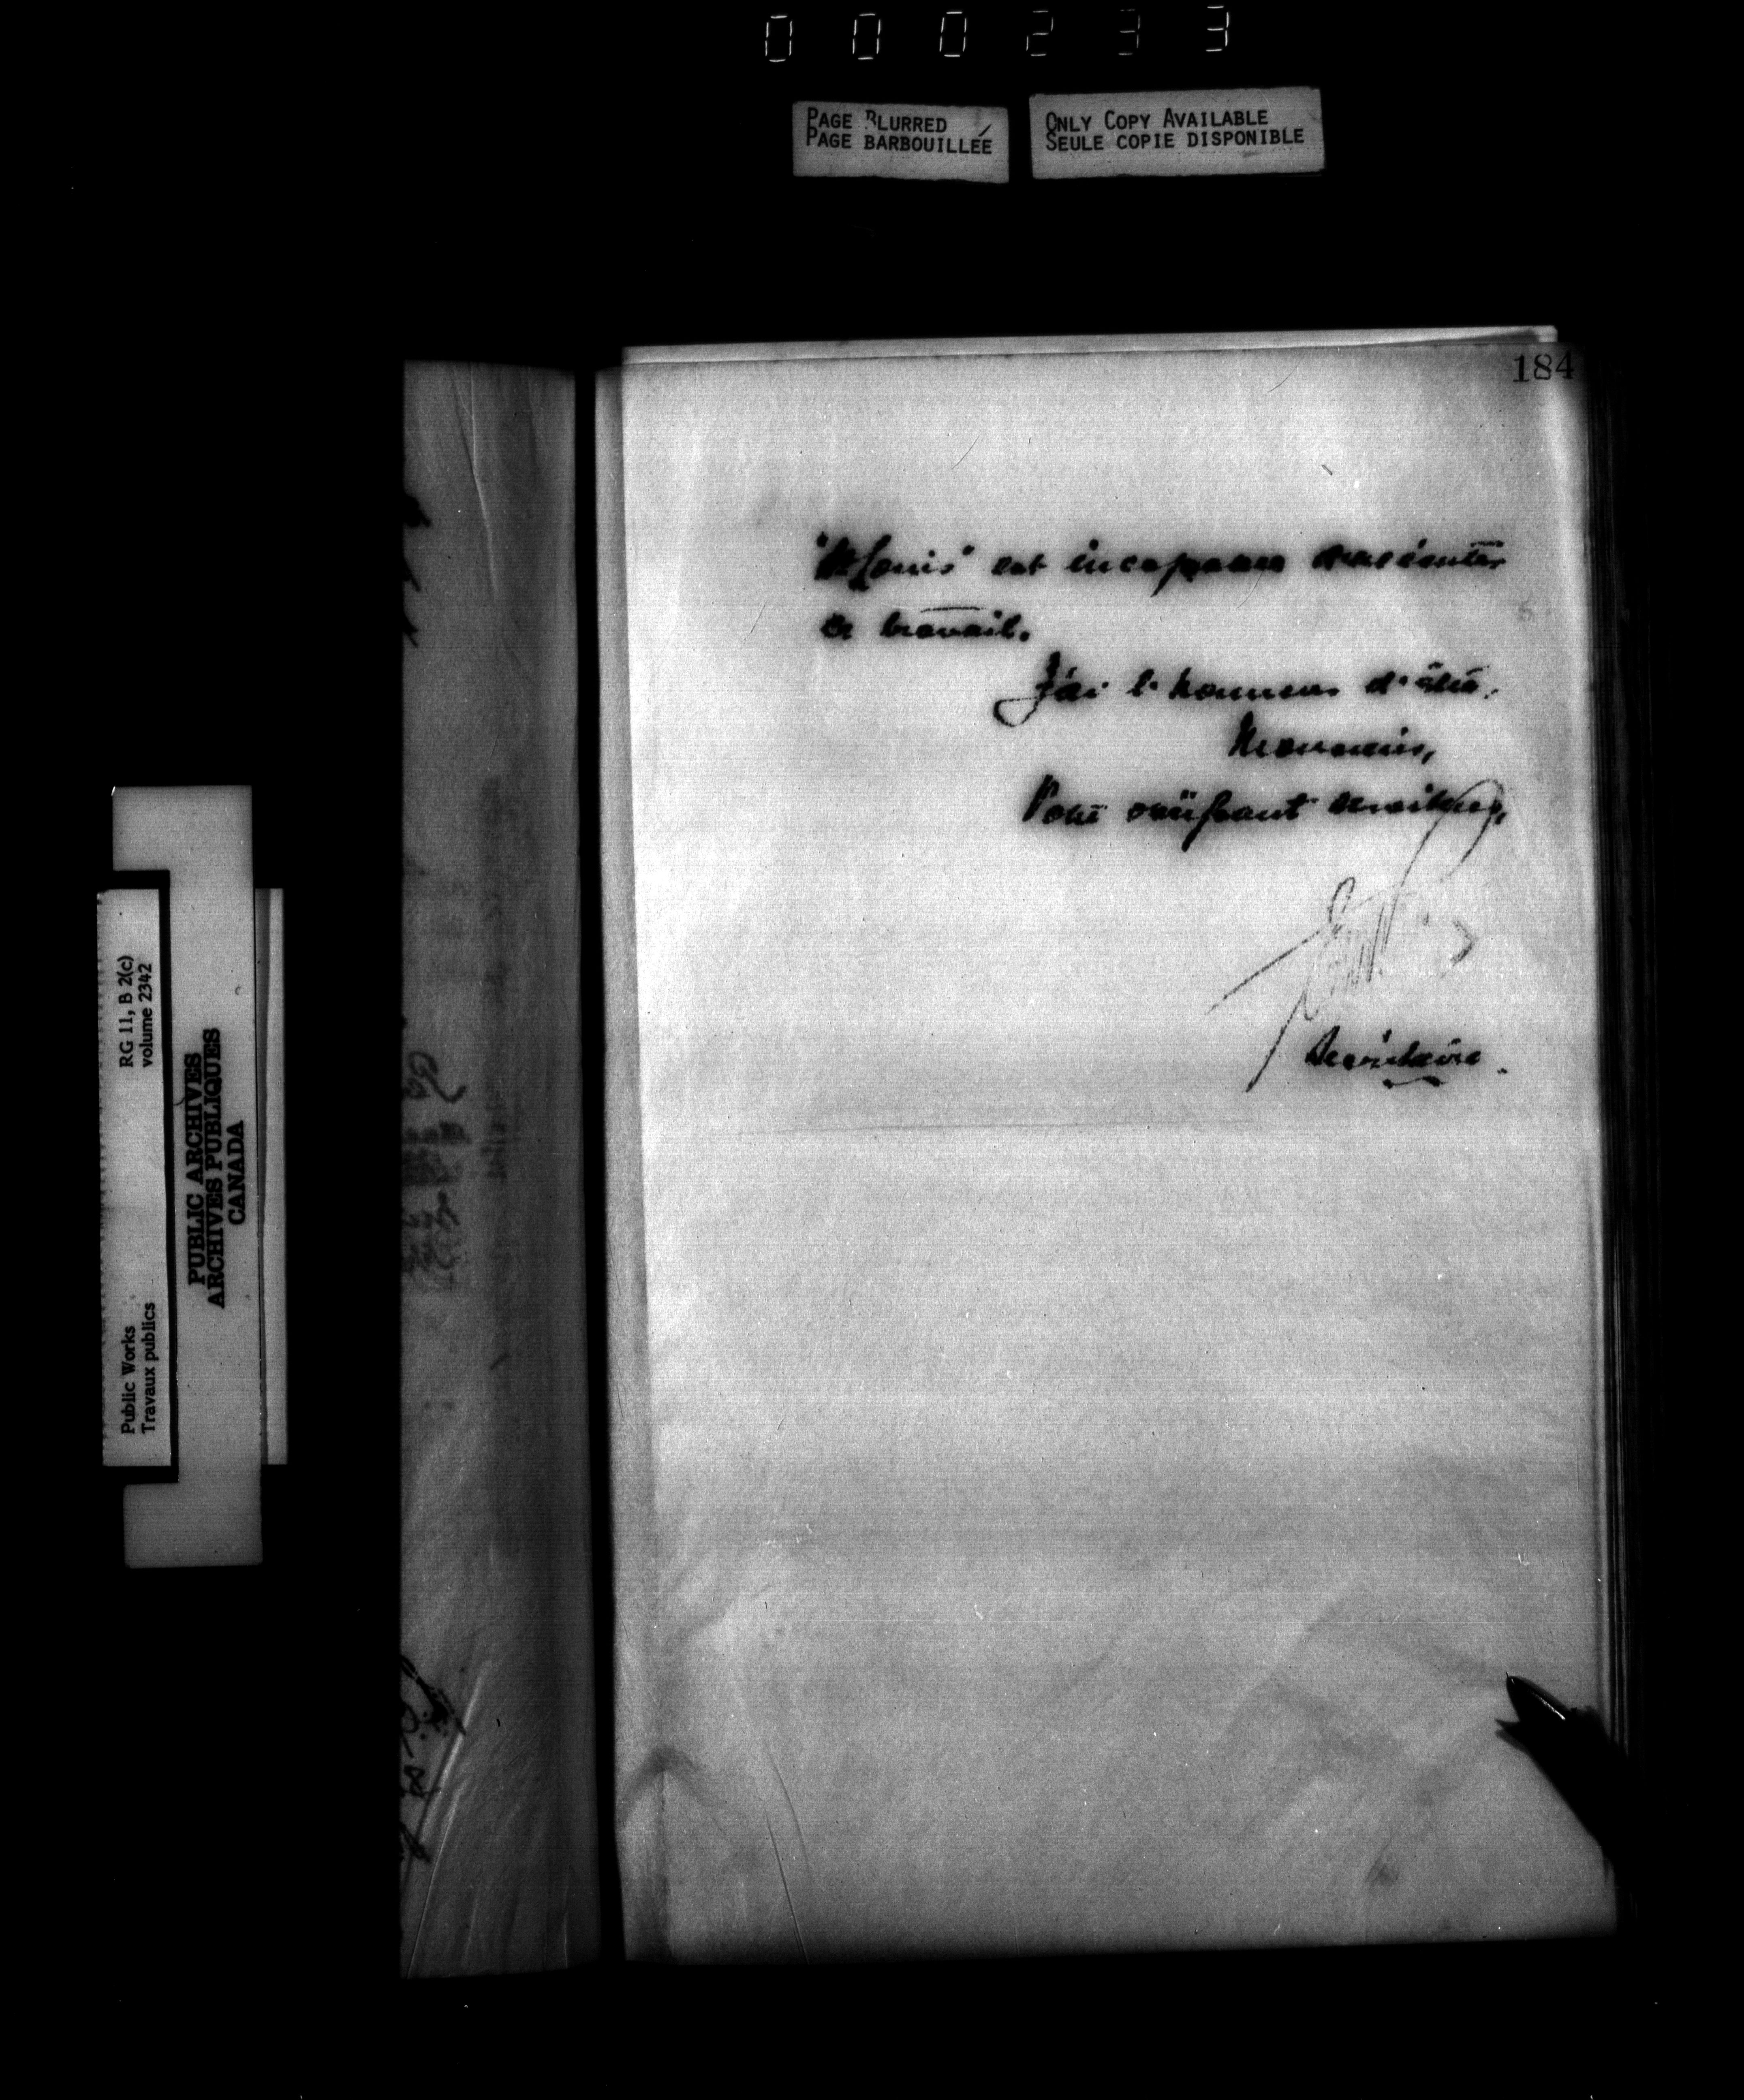 000233
PAGE BLURRED
PAGE BARBOUILLÉE
ONLY COPY AVAILABLE
SEULE COPIE DISPONIBLE
184
"St Louis" est incapable d'exécuter
ce travail.
J'ai l'honneur d'être,
Monsieur,
Votre obéissant serviteur,
Secrétaire.
Public Works
Travaux publics
RG 11, B 2(c)
volume 2342
PUBLIC ARCHIVES
ARCHIVES PUBLIQUES
CANADA